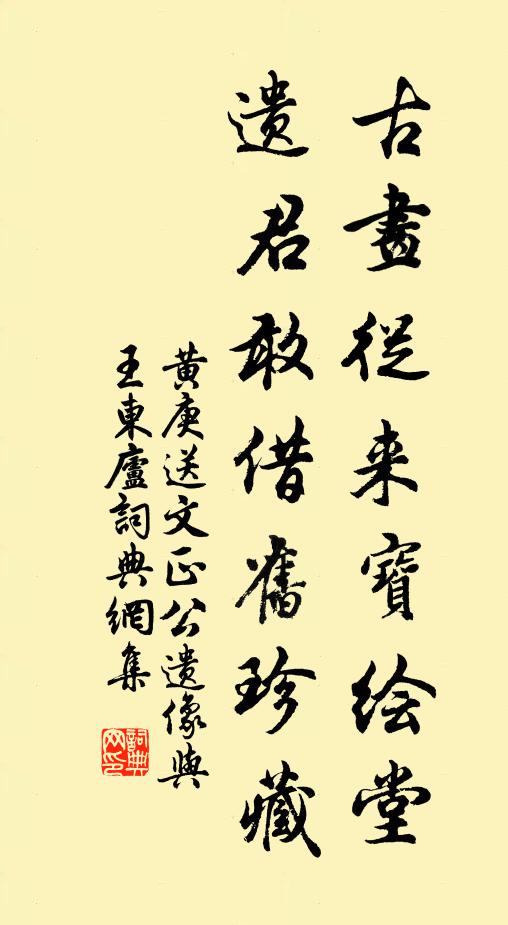 古畫從来寶绘堂
遗君敢借舊珍藏
黄庚送文正公遗像與
王東廬詞典網集
詞典网印